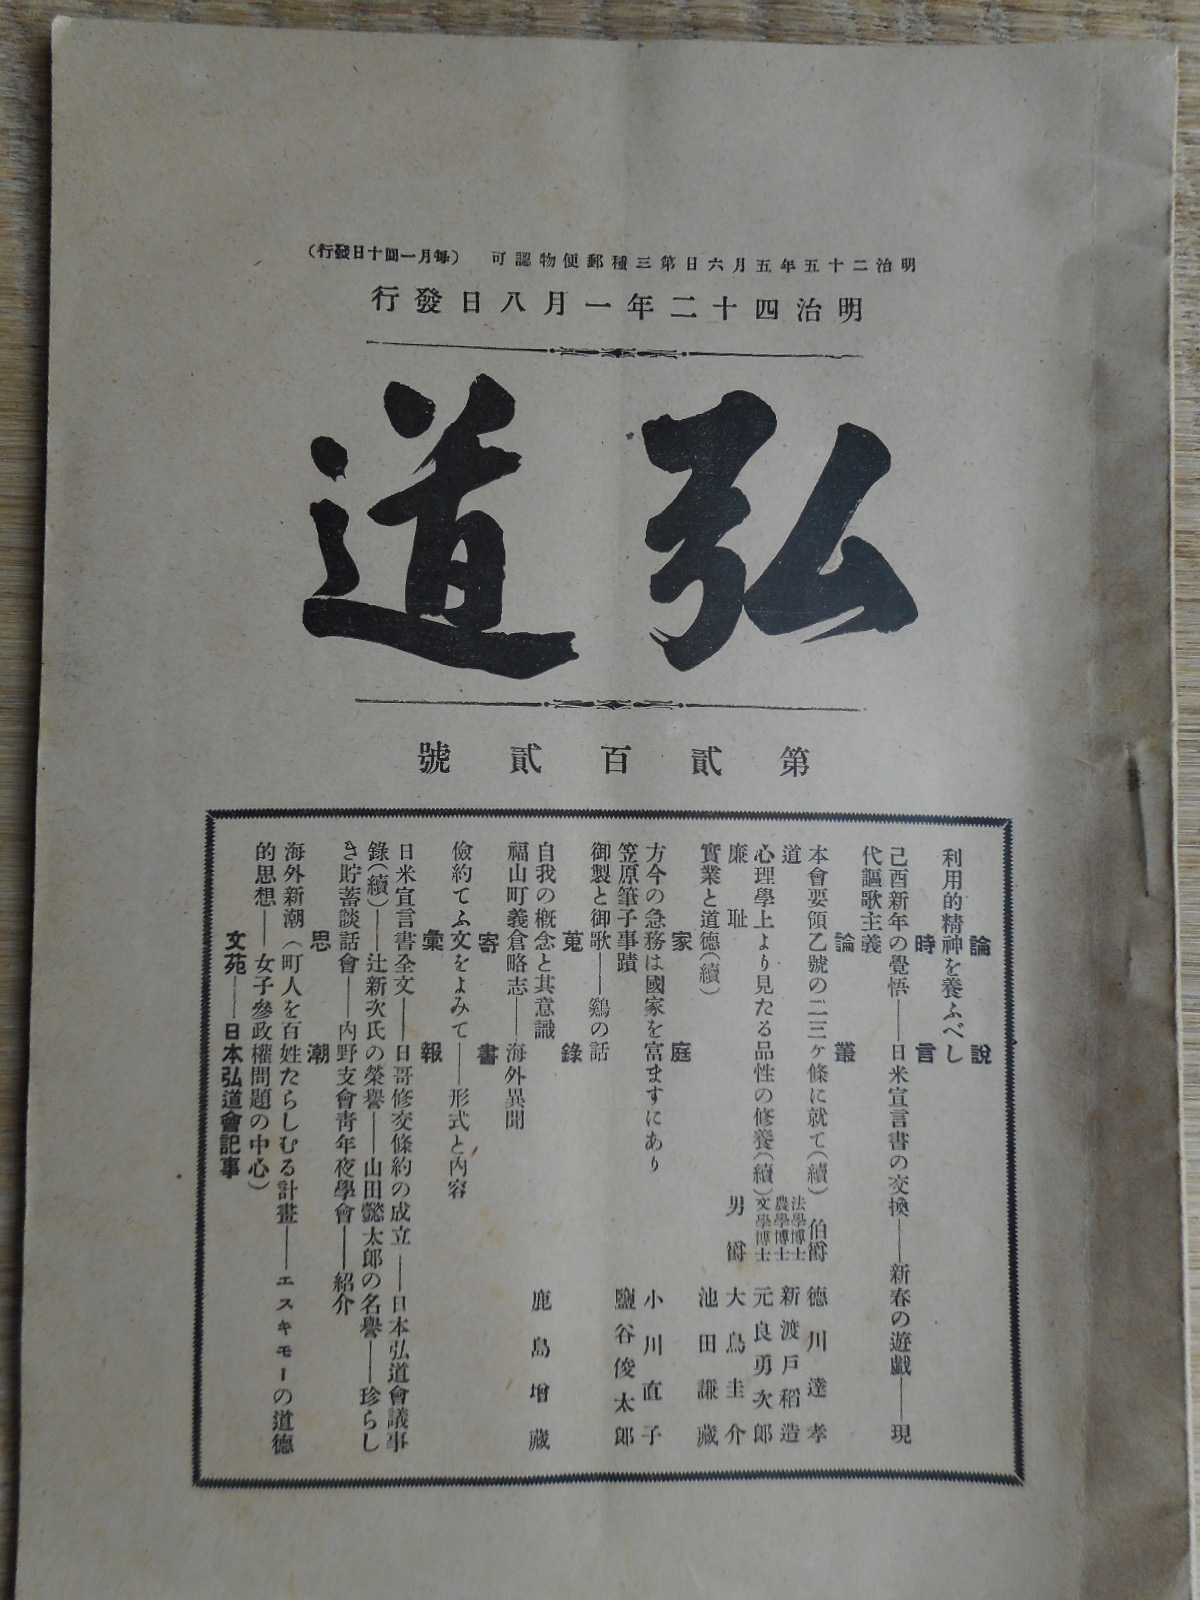 明治二十五年五月六日第三種郵便物認可　（每月一回十日發行）
明治四十二年一月八日發行
弘道
第貳百貳號
論說
利用的精神を養ふべし
時言
己酉新年の覺悟――日米宣言書の交換――新春の遊戲――現
代謳歌主義
論叢
本會要領乙號の二三ヶ條に就て（續）　伯爵　德川達孝
道　法學博士　農學博士　新渡戸稻造
心理學上より見たる品性の修養（續）　文學博士　元良勇次郎
廉恥　男爵　大鳥圭介
實業と道德（續）　池田謙藏
家庭
方今の急務は國家を富ますにあり　小川直子
笠原筆子事蹟　鹽谷俊太郎
御製と御歌――鷄の話
蒐錄
自我の概念と其意識　鹿島增藏
福山町義倉略志――海外異聞
寄書
儉約てふ文をよみて――形式と内容
彙報
日米宣言書全文――日哥修交條約の成立――日本弘道會議事
錄（續）――辻新次氏の榮譽――山田懿太郎の名譽――珍らし
き貯蓄談話會――内野支會靑年夜學會――紹介
思潮
海外新潮（町人を百姓たらしむる計畫――エスキモーの道德
的思想――女子參政權問題の中心）
文苑――日本弘道會記事